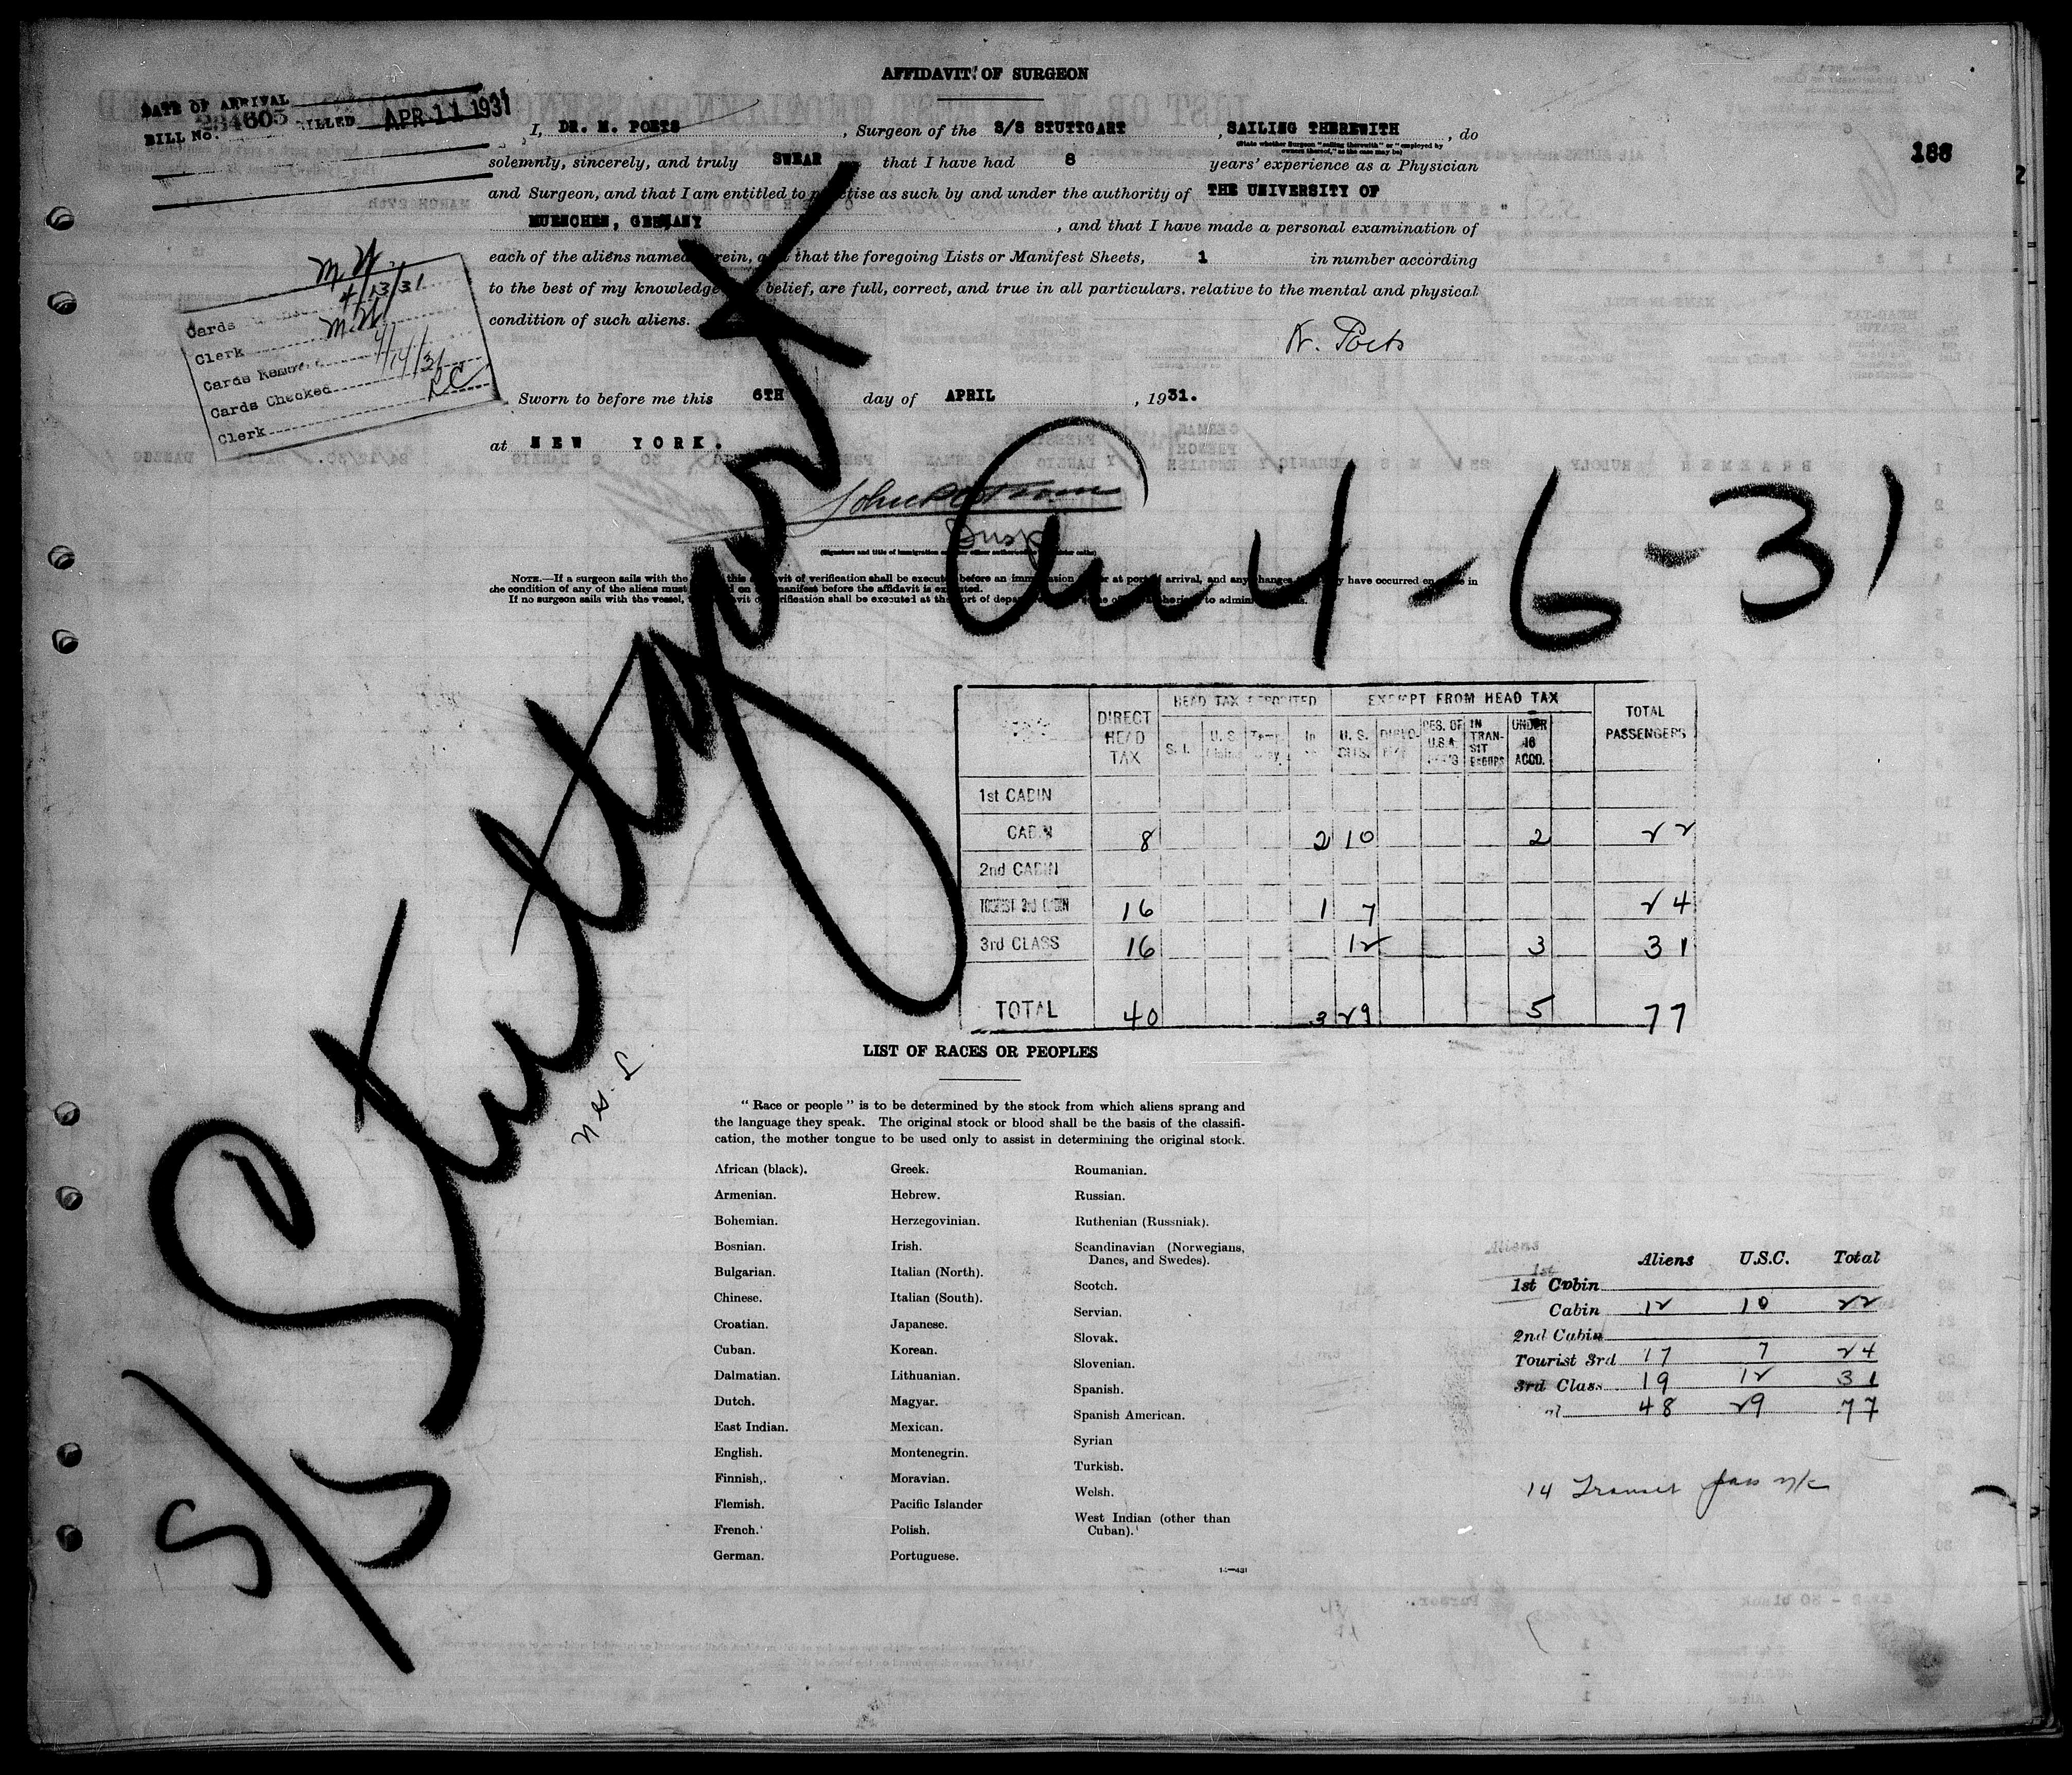 AFFIDAVIT OF SURGEON
DATE OF ARRIVAL
BILL No. 234605 BILLED APR 11 1931
186
I, DR. M. POETS, Surgeon of the S/S STUTTGART, SAILING THEREWITH, do
(State whether Surgeon "sailing therewith" or "employed by owners thereof," as the case may be)
solemnly, sincerely, and truly SWEAR that I have had 8 years' experience as a Physician
and Surgeon, and that I am entitled to practise as such by and under the authority of THE UNIVERSITY OF
MUENCHEN, GERMANY, and that I have made a personal examination of
each of the aliens named herein, and that the foregoing Lists or Manifest Sheets, 1 in number according
to the best of my knowledge and belief, are full, correct, and true in all particulars. relative to the mental and physical
condition of such aliens.
Poets
Cards
4/13/31
Clerk
Cards Removed
4/14/31
Cards Checked
RC
Clerk
Sworn to before me this 6TH day of APRIL, 1931.
at NEW YORK.
Insp
(Signature and title of immigration or other officer authorized to administer oaths)
NOTE.—If a surgeon sails with the this affidavit of verification shall be executed before an immigration officer at port of arrival, and any changes have occurred en route in
the condition of any of the aliens must on manifest before the affidavit is executed.
If no surgeon sails with the vessel, affidavit of verification shall be executed at the port of departure to administer
S/S Stuttgart
Arr 4-6-31
DIRECT HEAD TAX
HEAD TAX DEPOSITED
EXEMPT FROM HEAD TAX
TOTAL PASSENGERS
S. I. U. S. In U. S. CITS. RES. OF U.S.A. IN TRANSIT UNDER 16 ACCD.
1st CABIN
CABIN 8 2 10 2 22
2nd CABIN
TOURIST 3rd CABIN 16 1 7 24
3rd CLASS 16 12 3 31
TOTAL 40 3 29 5 77
LIST OF RACES OR PEOPLES
"Race or people" is to be determined by the stock from which aliens sprang and
the language they speak. The original stock or blood shall be the basis of the classifi-
cation, the mother tongue to be used only to assist in determining the original stock.
African (black).
Armenian.
Bohemian.
Bosnian.
Bulgarian.
Chinese.
Croatian.
Cuban.
Dalmatian.
Dutch.
East Indian.
English.
Finnish.
Flemish.
French.
German.
Greek.
Hebrew.
Herzegovinian.
Irish.
Italian (North).
Italian (South).
Japanese.
Korean.
Lithuanian.
Magyar.
Mexican.
Montenegrin.
Moravian.
Pacific Islander
Polish.
Portuguese.
Roumanian.
Russian.
Ruthenian (Russniak).
Scandinavian (Norwegians,
Danes, and Swedes).
Scotch.
Servian.
Slovak.
Slovenian.
Spanish.
Spanish American.
Syrian
Turkish.
Welsh.
West Indian (other than
Cuban).
Aliens U.S.C. Total
1st Cabin
Cabin 12 10 22
2nd Cabin
Tourist 3rd 17 7 24
3rd Class 19 12 31
48 29 77
14 Transit